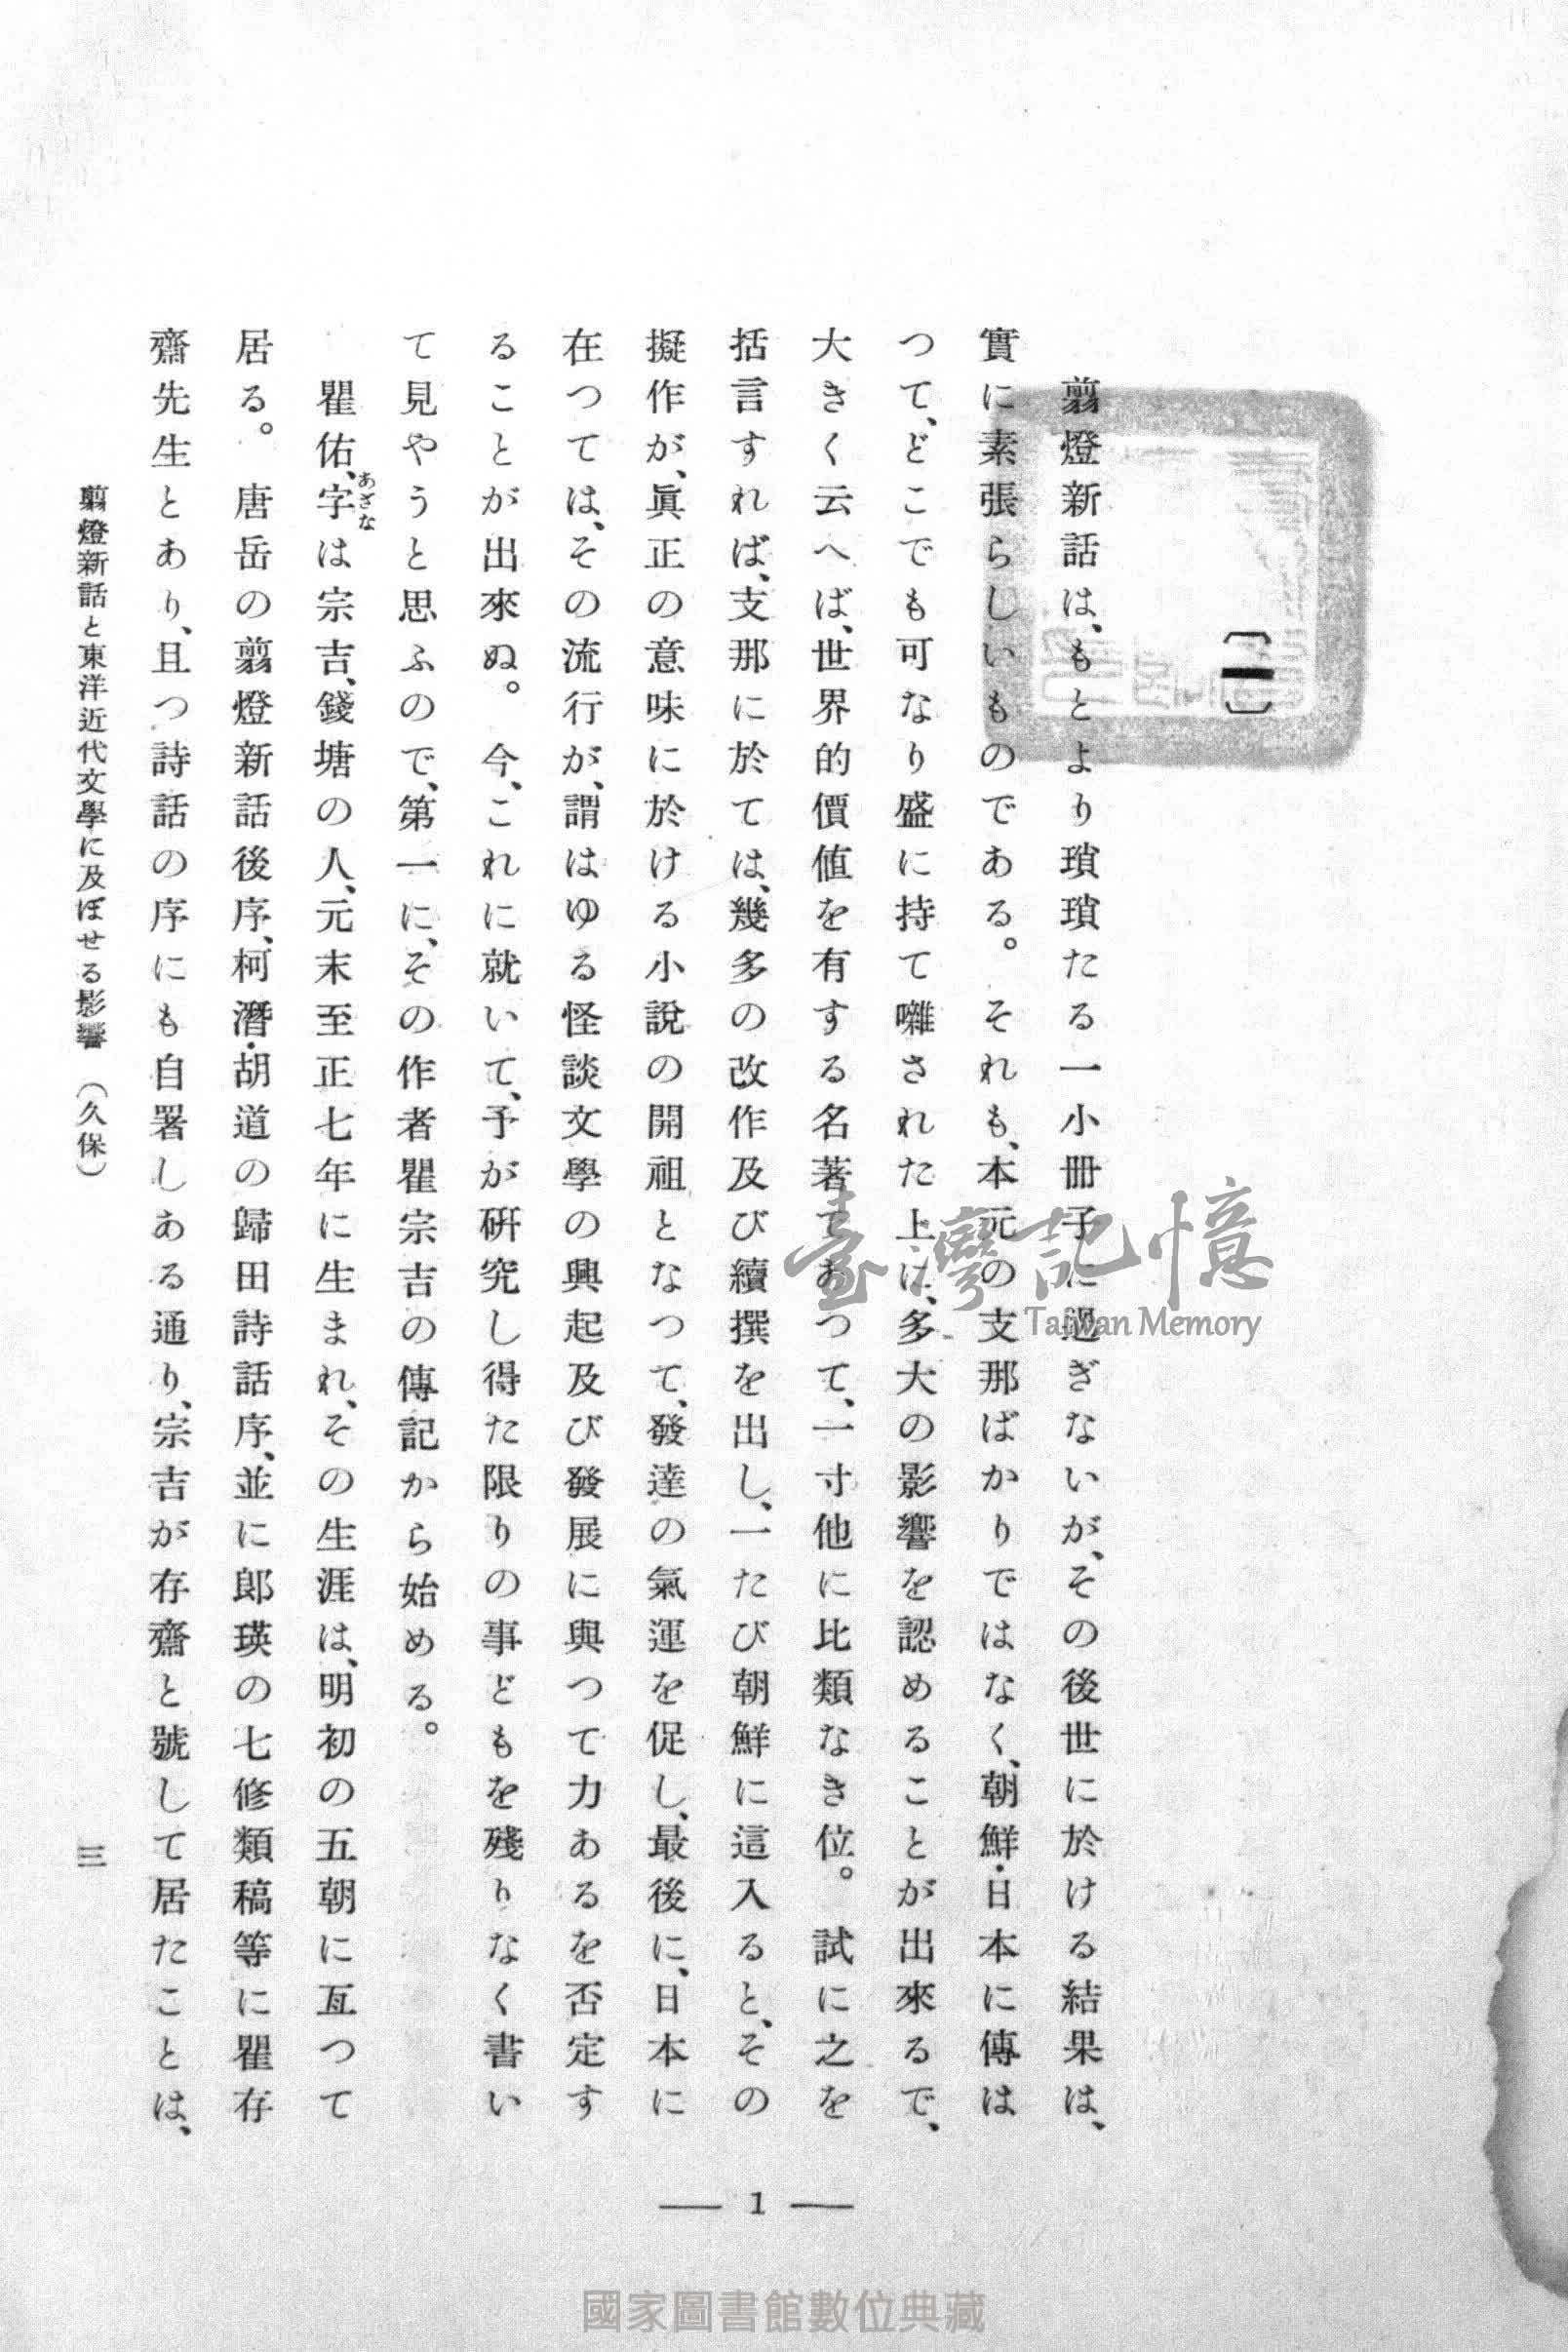 〔一〕
翦燈新話は、もとより瑣瑣たる一小冊子に過ぎないが、その後世に於ける結果は、
實に素張らしいものである。それも、本元の支那ばかりではなく、朝鮮・日本に傳は
つて、どこでも可なり盛に持て囃された上に、多大の影響を認めることが出來るで、
大きく云へば、世界的價値を有する名著であつて、一寸他に比類なき位。試に之を
括言すれば、支那に於ては、幾多の改作及び續撰を出し、一たび朝鮮に這入ると、その
擬作が、眞正の意味に於ける小說の開祖となつて、發達の氣運を促し、最後に、日本に
在つては、その流行が、謂はゆる怪談文學の興起及び發展に與つて力あるを否定す
ることが出來ぬ。今、これに就いて、予が研究し得た限りの事どもを殘りなく書い
て見やうと思ふので、第一に、その作者瞿宗吉の傳記から始める。
瞿佑、字は宗吉、錢塘の人、元末至正七年に生まれ、その生涯は、明初の五朝に亙つて
あざな
居る。唐岳の翦燈新話後序、柯潛・胡道の歸田詩話序、並に郎瑛の七修類稿等に瞿存
齋先生とあり、且つ詩話の序にも自署しある通り、宗吉が存齋と號して居たことは、
翦燈新話と東洋近代文學に及ぼせる影響（久保）
三
— 1 —
臺灣記憶
Taiwan Memory
國家圖書館數位典藏